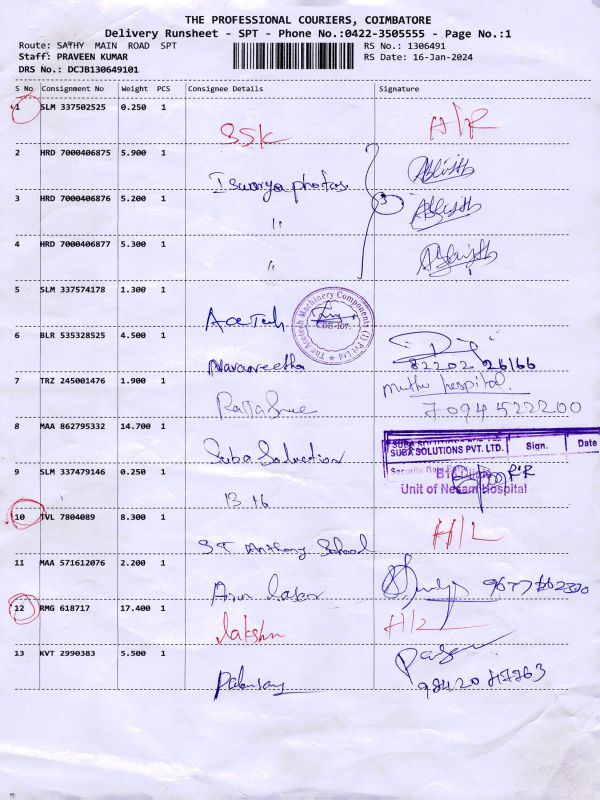 THE PROFESSIONAL COURIERS, COIMBATORE
Delivery Runsheet - SPT - Phone No.:0422-3505555 - Page No.:1
Route: SATHY MAIN ROAD SPT RS No.: 1306491
Staff: PRAVEEN KUMAR RS Date: 16-Jan-2024
DRS No.: DCJB130649101
S No Consignment No Weight PCS Consignee Details Signature
1 SLM 337502525 0.250 1
SSK
2 HRD 7000406875 5.900 1
Iswarya photos
3 HRD 7000406876 5.200 1 3
"
4 HRD 7000406877 5.300 1
"
5 SLM 337574178 1.300 1
AceTech
The Acetech Machinery Components (I) Pvt Ltd
CBE-107.
6 BLR 535328525 4.500 1
82202 26166
7 TRZ 245001476 1.900 1 muthu hospital.
7094522200
8 MAA 862795332 14.700 1
Suba Solution
SUBA SOLUTIONS PVT. LTD. Sign. Date
9 SLM 337479146 0.250 1
Unit of Nesam Hospital
10 TVL 7804089 8.300 1 H/L
ST Anthony School
11 MAA 571612076 2.200 1
12 RMG 618717 17.400 1 H/L
lakshm
13 KVT 2990383 5.500 1